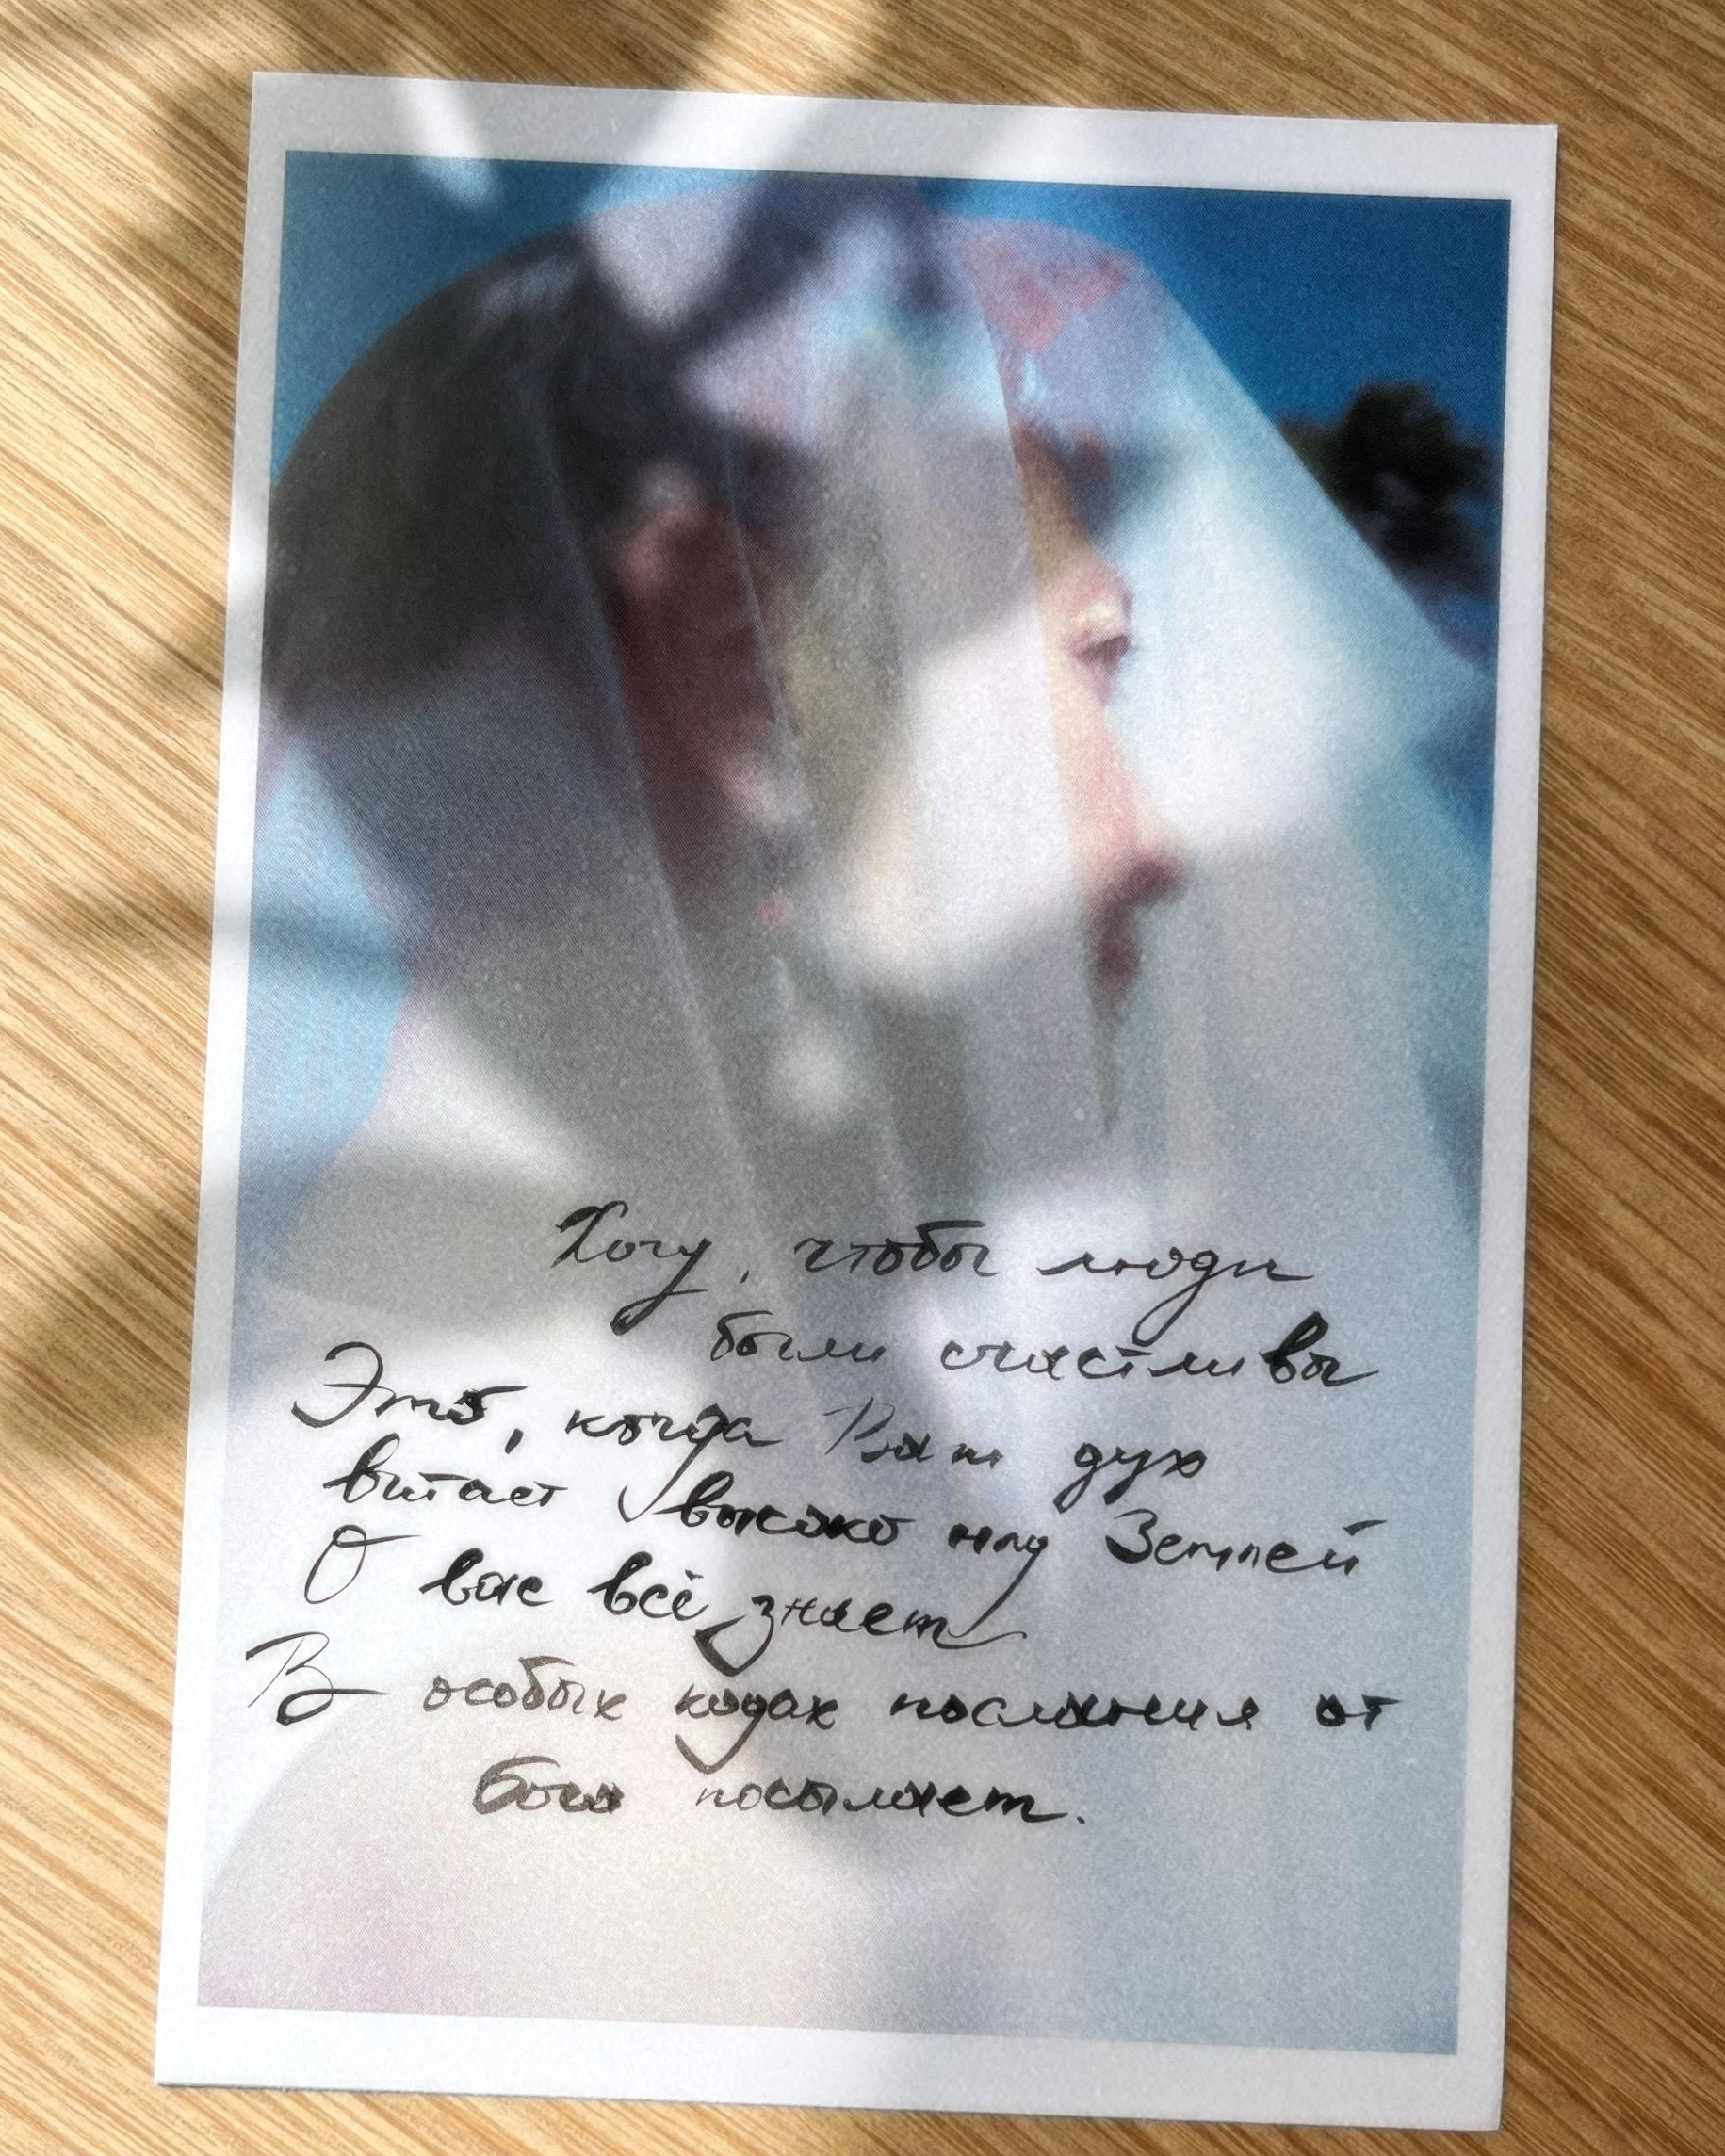 Хочу, чтобы люди
были счастливы
Это, когда Ваш дух
витает высоко над Землей
О вас всё знает
В особых кодах послания от
бога посылает.